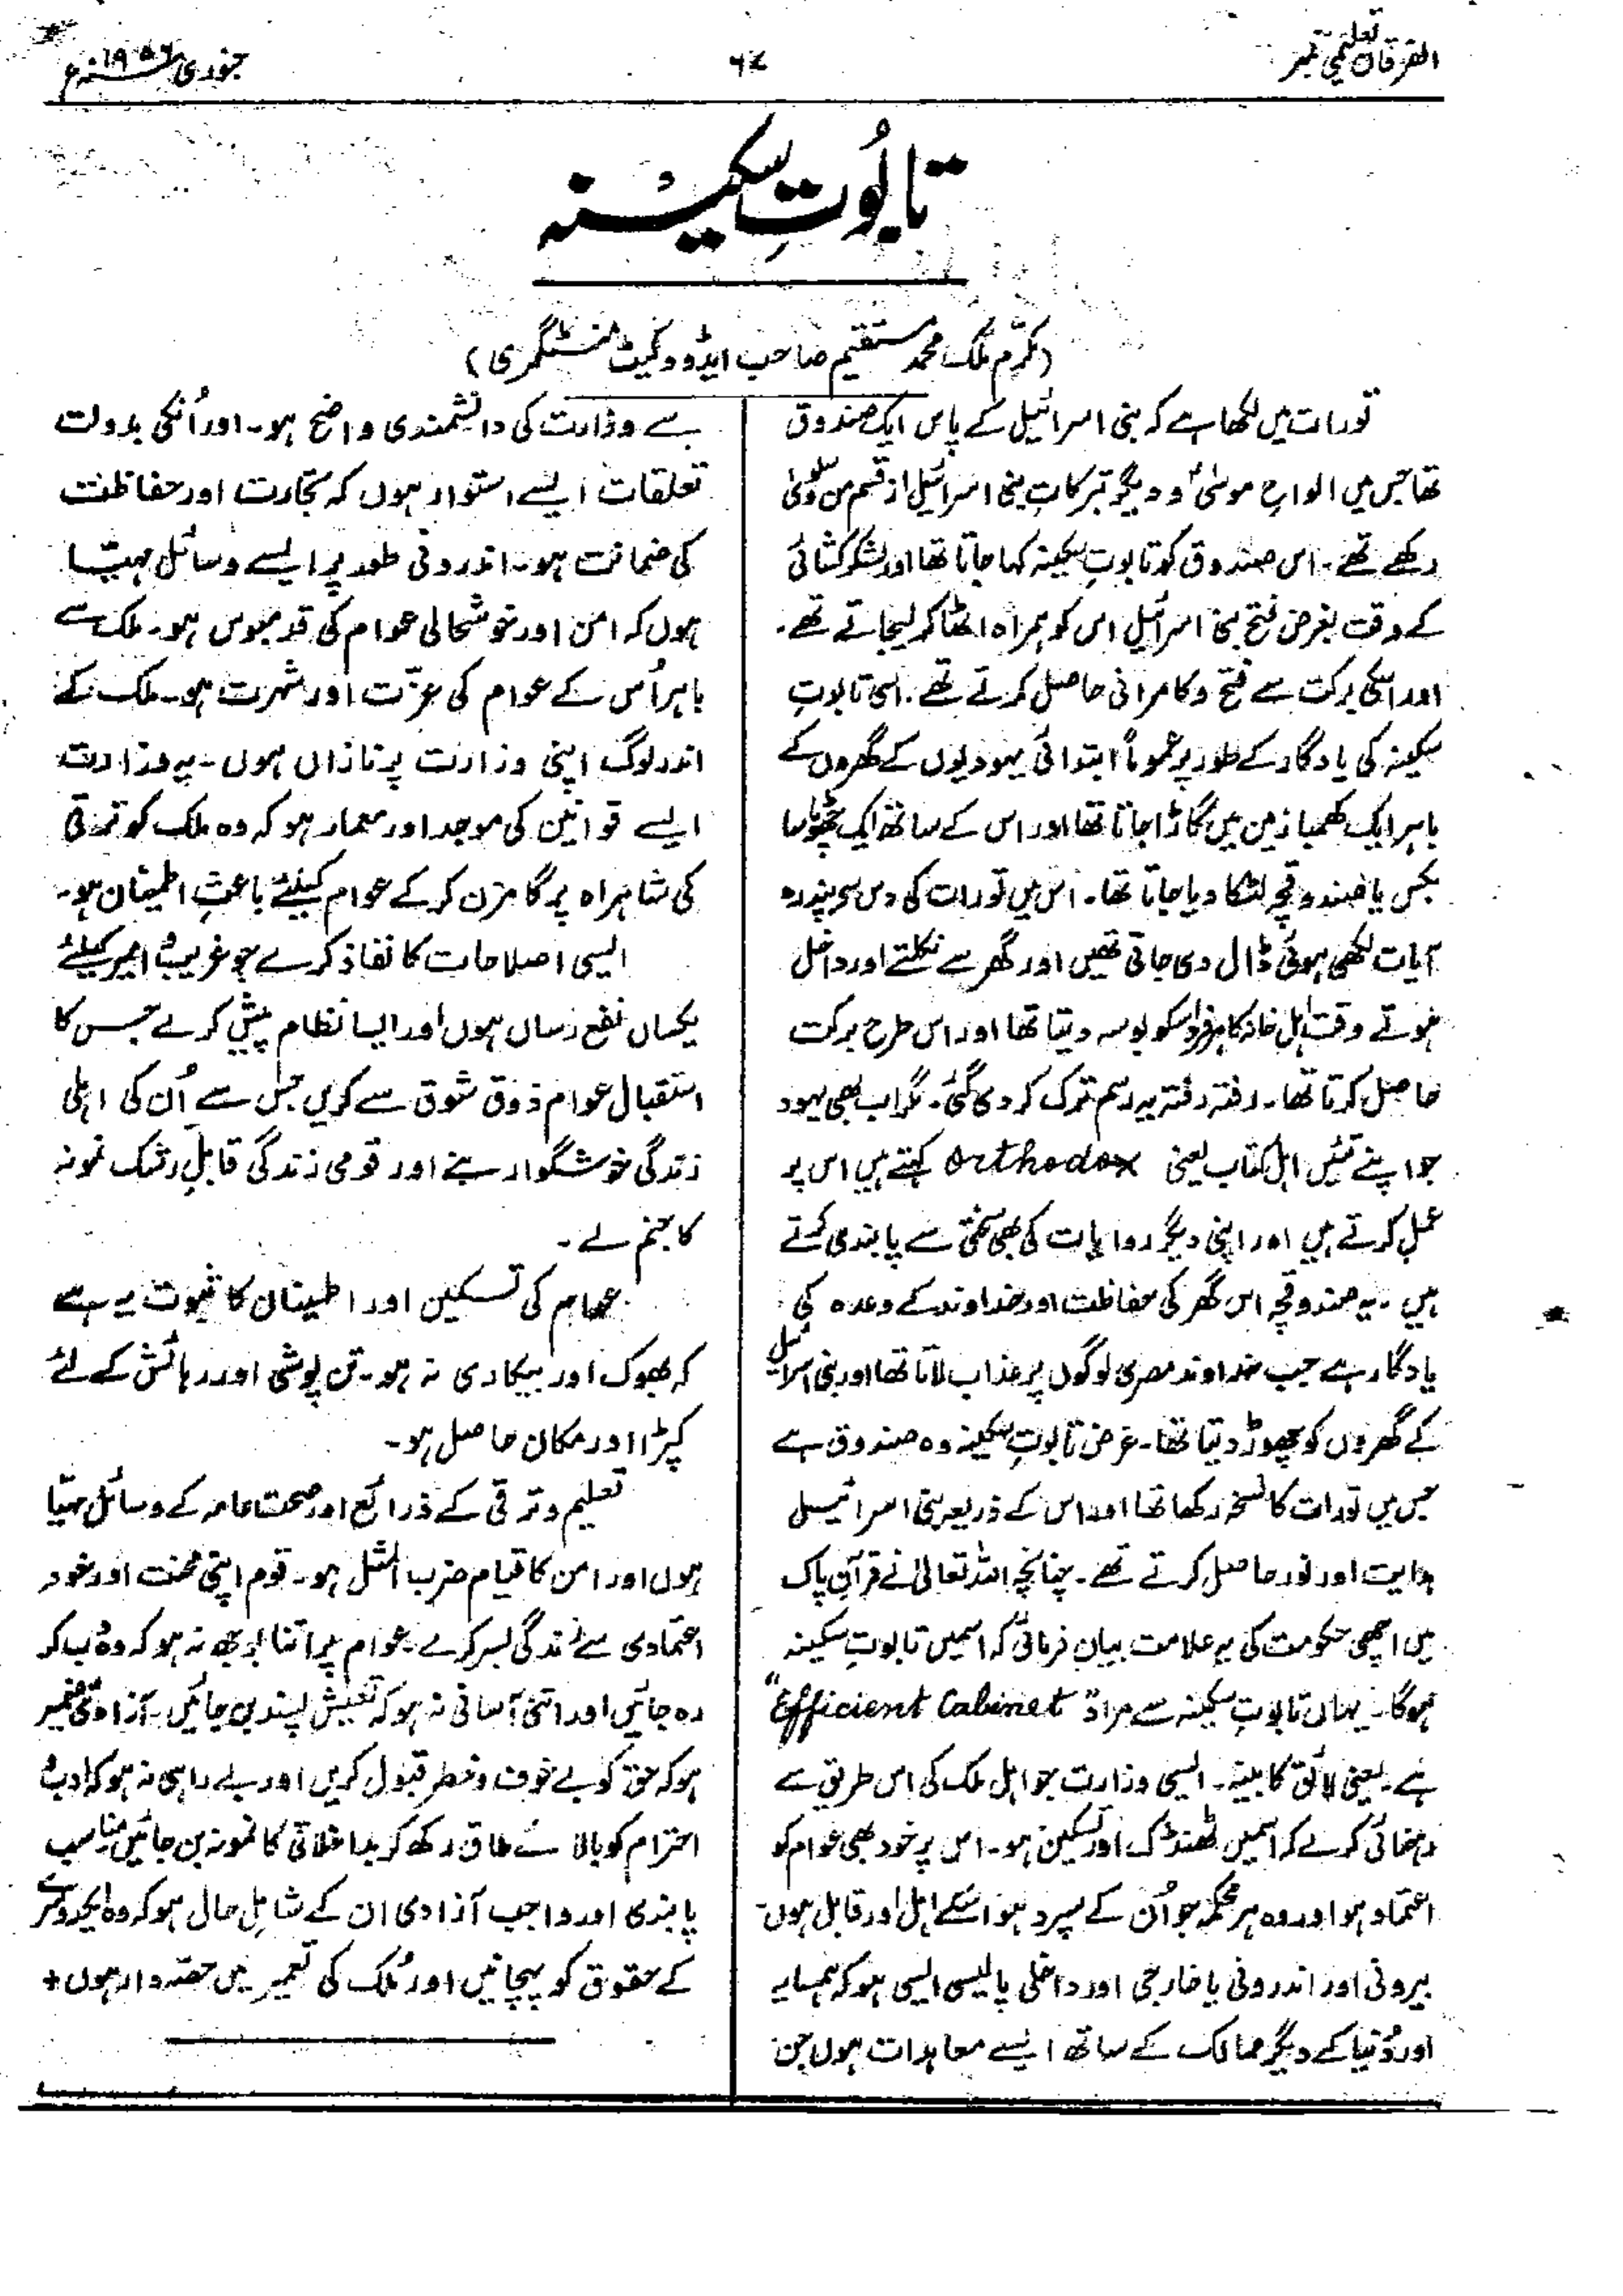 الفرقان تعلیمی نمبر
۶۷
جنوری ۱۹۵۶ء
تابُوتِ سکینہ
(مکرّم ملک محمد مستقیم صاحب ایڈووکیٹ منٹگمری)
تورات میں لکھا ہے کہ بنی اسرائیل کے پاس ایک صندوق
تھا جس میں الواحِ موسٰیؑ و دیگر تبرکاتِ بنی اسرائیل از قسم من سلویٰ
رکھے تھے۔ اس صندوق کو تابوتِ سکینہ کہا جاتا تھا اور لشکر کشائی
کے وقت بغرض فتح بنی اسرائیل اس کو ہمراہ اٹھا کر لیجاتے تھے۔
اور اسکی برکت سے فتح و کامرانی حاصل کرتے تھے۔ اسی تابوتِ
سکینہ کی یادگار کے طور پر عموماً ابتدائی یہودیوں کے گھروں کے
باہر ایک کھمبا زمین میں گاڑا جاتا تھا اور اس کے ساتھ ایک چھوٹا سا
بکس یا صندوقچہ لٹکا دیا جاتا تھا۔ اس میں تورات کی دس پندرہ
آیات لکھی ہوئی ڈال دی جاتی تھیں اور گھر سے نکلتے اور داخل
ہوتے وقت اہل خانہ کا ہر فرد اسکو بوسہ دیتا تھا اور اس طرح برکت
حاصل کرتا تھا۔ رفتہ رفتہ یہ رسم ترک کر دی گئی۔ مگر اب بھی یہود
جو اپنے تئیں اہل کتاب یعنی Orthodox کہتے ہیں اس پر
عمل کرتے ہیں اور اپنی دیگر روایات کی بھی سختی سے پابندی کرتے
ہیں۔ یہ صندوقچہ اس گھر کی حفاظت اور خداوند کے وعدہ کی
یادگار ہے جب خداوند مصری لوگوں پر عذاب لاتا تھا اور بنی اسرائیل
کے گھروں کو چھوڑ دیتا تھا۔ غرض تابوتِ سکینہ وہ صندوق ہے
جس میں تورات کا نسخہ رکھا تھا اور اس کے ذریعہ بنی اسرائیل
ہدایت اور نور حاصل کرتے تھے۔ چنانچہ اللہ تعالیٰ نے قرآن پاک
میں اچھی حکومت کی یہ علامت بیان فرمائی کہ اسمیں تابوتِ سکینہ
ہوگا۔ یہاں تابوتِ سکینہ سے مراد "Efficient Cabinet"
ہے۔ یعنی لائق کابینہ۔ ایسی وزارت جو اہل ملک کی اس طریق سے
رہنمائی کرے کہ اسمیں ٹھنڈک اور تسکین ہو۔ اس پر خود بھی عوام کو
اعتماد ہو اور وہ ہر محکمہ جو اُن کے سپرد ہو اسکے اہل اور قابل ہوں۔
بیرونی اور اندرونی یا خارجی اور داخلی پالیسی ایسی ہو کہ ہمسایہ
اور دُنیا کے دیگر ممالک کے ساتھ ایسے معاہدات ہوں جن
سے وزارت کی دانشمندی واضح ہو۔ اور اُنکی بدولت
تعلقات ایسے استوار ہوں کہ تجارت اور حفاظت
کی ضمانت ہو۔ اندرونی طور پر ایسے وسائل مہیّا
ہوں کہ امن اور خوشحالی عوام کی قدمبوس ہو۔ ملک سے
باہر اُس کے عوام کی عزّت اور شہرت ہو۔ ملک کے
اندر لوگ اپنی وزارت پر نازاں ہوں۔ یہ وزارت
ایسے قوانین کی موجد اور معمار ہو کہ وہ ملک کو ترقی
کی شاہراہ پر گامزن کر کے عوام کیلئے باعثِ اطمینان ہو۔
ایسی اصلاحات کا نفاذ کرے جو غریب و امیر کیلئے
یکساں نفع رساں ہوں اور ایسا نظام پیش کرے جس کا
استقبال عوام ذوق شوق سے کریں جس سے اُن کی اہلی
زندگی خوشگوار بنے اور قومی زندگی قابلِ رشک نمونہ
کا جنم لے۔
عوام کی تسکین اور اطمینان کا ثبوت یہ ہے
کہ بھوک اور بیکاری نہ ہو۔ تن پوشی اور رہائش کے لئے
کپڑا اور مکان حاصل ہو۔
تعلیم و ترقی کے ذرائع اور صحت عامہ کے وسائل مہیّا
ہوں اور امن کا قیام ضرب المثل ہو۔ قوم اپنی محنت اور خود
اعتمادی سے زندگی بسر کرے۔ عوام پر اتنا بوجھ نہ ہو کہ وہ دب کر
رہ جائیں اور اتنی آسانی نہ ہو کہ تعیش پسند بن جائیں۔ آزادئ ضمیر
ہو کہ حق کو بے خوف و خطر قبول کریں اور بے راہی نہ ہو کہ ادب و
احترام کو بالائے طاق رکھ کر بداخلاقی کا نمونہ بن جائیں مناسب
پابندی اور واجب آزادی ان کے شاملِ حال ہو کہ وہ ایکدوسرے
کے حقوق کو پہچانیں اور مُلک کی تعمیر میں حصّہ دار ہوں+